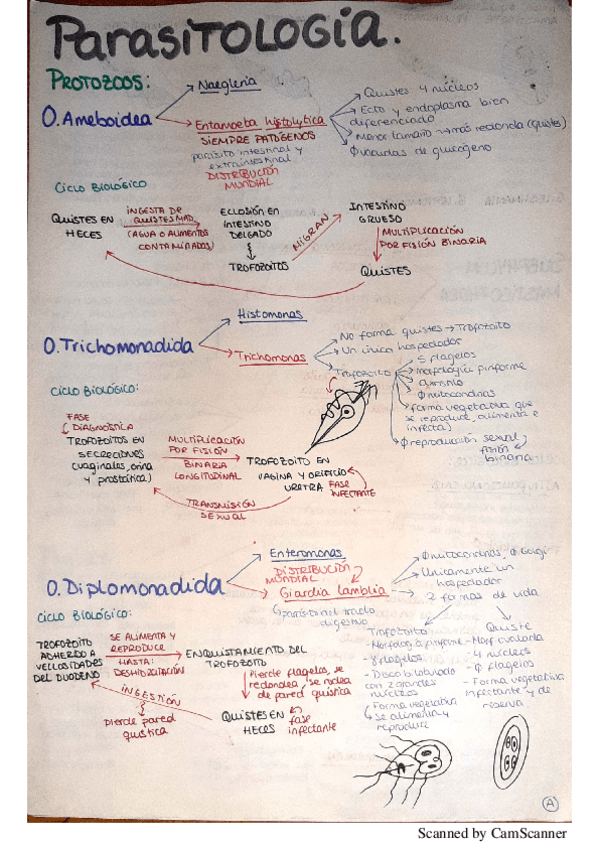 PARASITOLOGIA.
PROTOZOOS:
O. Ameboidea
Naegleria
Entamoeba histolytica
SIEMPRE PATÓGENOS
parásito intestinal y
extraintestinal
DISTRIBUCIÓN
MUNDIAL
Quistes 4 núcleos
Ecto y endoplasma bien
diferenciado
Menor tamaño → más redonda (quistes)
Ø vacuolas de glucógeno
CICLO BIOLÓGICO
QUISTES EN
HECES
INGESTA DE
QUISTES MAD.
(AGUA O ALIMENTOS
CONTAMINADOS)
ECLOSIÓN EN
INTESTINO
DELGADO
TROFOZOITOS
MIGRAN
INTESTINO
GRUESO
MULTIPLICACIÓN
POR FISIÓN BINARIA
QUISTES
O. Trichomonadida
Histomonas
Trichomonas
No forma quistes → Trofozoito
Un único hospedador
Trofozoito
5 flagelos
morfología piriforme
Ø mitocondrias
forma vegetativa que
se reproduce, alimenta e
infecta)
Ø reproducción sexual
fisión
binaria
CICLO BIOLÓGICO:
FASE
DIAGNÓSTICA
TROFOZOITOS EN
SECRECIONES
(vaginales, orina
y prostática)
MULTIPLICACIÓN
POR FISIÓN
BINARIA
LONGITUDINAL
TROFOZOITO EN
VAGINA Y ORIFICIO
URETRA
FASE
INFECTANTE
TRANSMISIÓN
SEXUAL
O. Diplomonadida
Enteromonas
DISTRIBUCIÓN
MUNDIAL
Giardia lamblia
parásito del tracto
digestivo
Ø mitocondrias, Ø Golgi
Únicamente un
hospedador
2 formas de vida
CICLO BIOLÓGICO:
TROFOZOITO
ADHERIDO A
VELLOSIDADES
DEL DUODENO
SE ALIMENTA Y
REPRODUCE
HASTA:
DESHIDRATACIÓN
ENQUISTAMIENTO DEL
TROFOZOITO
Pierde flagelos, se
redondea, se rodea
de pared quística
QUISTES EN
HECES
fase
infectante
INGESTIÓN
Pierde pared
quística
Trofozoito
- Morfología piriforme
- 8 flagelos
- Disco bilobulado
con 2 grandes
núcleos
- Forma vegetativa
se alimenta y
reproduce
Quiste
- Morf ovalada
- 4 núcleos
- Ø flagelos
- Forma vegetativa
infectante y de
reserva
A
Scanned by CamScanner